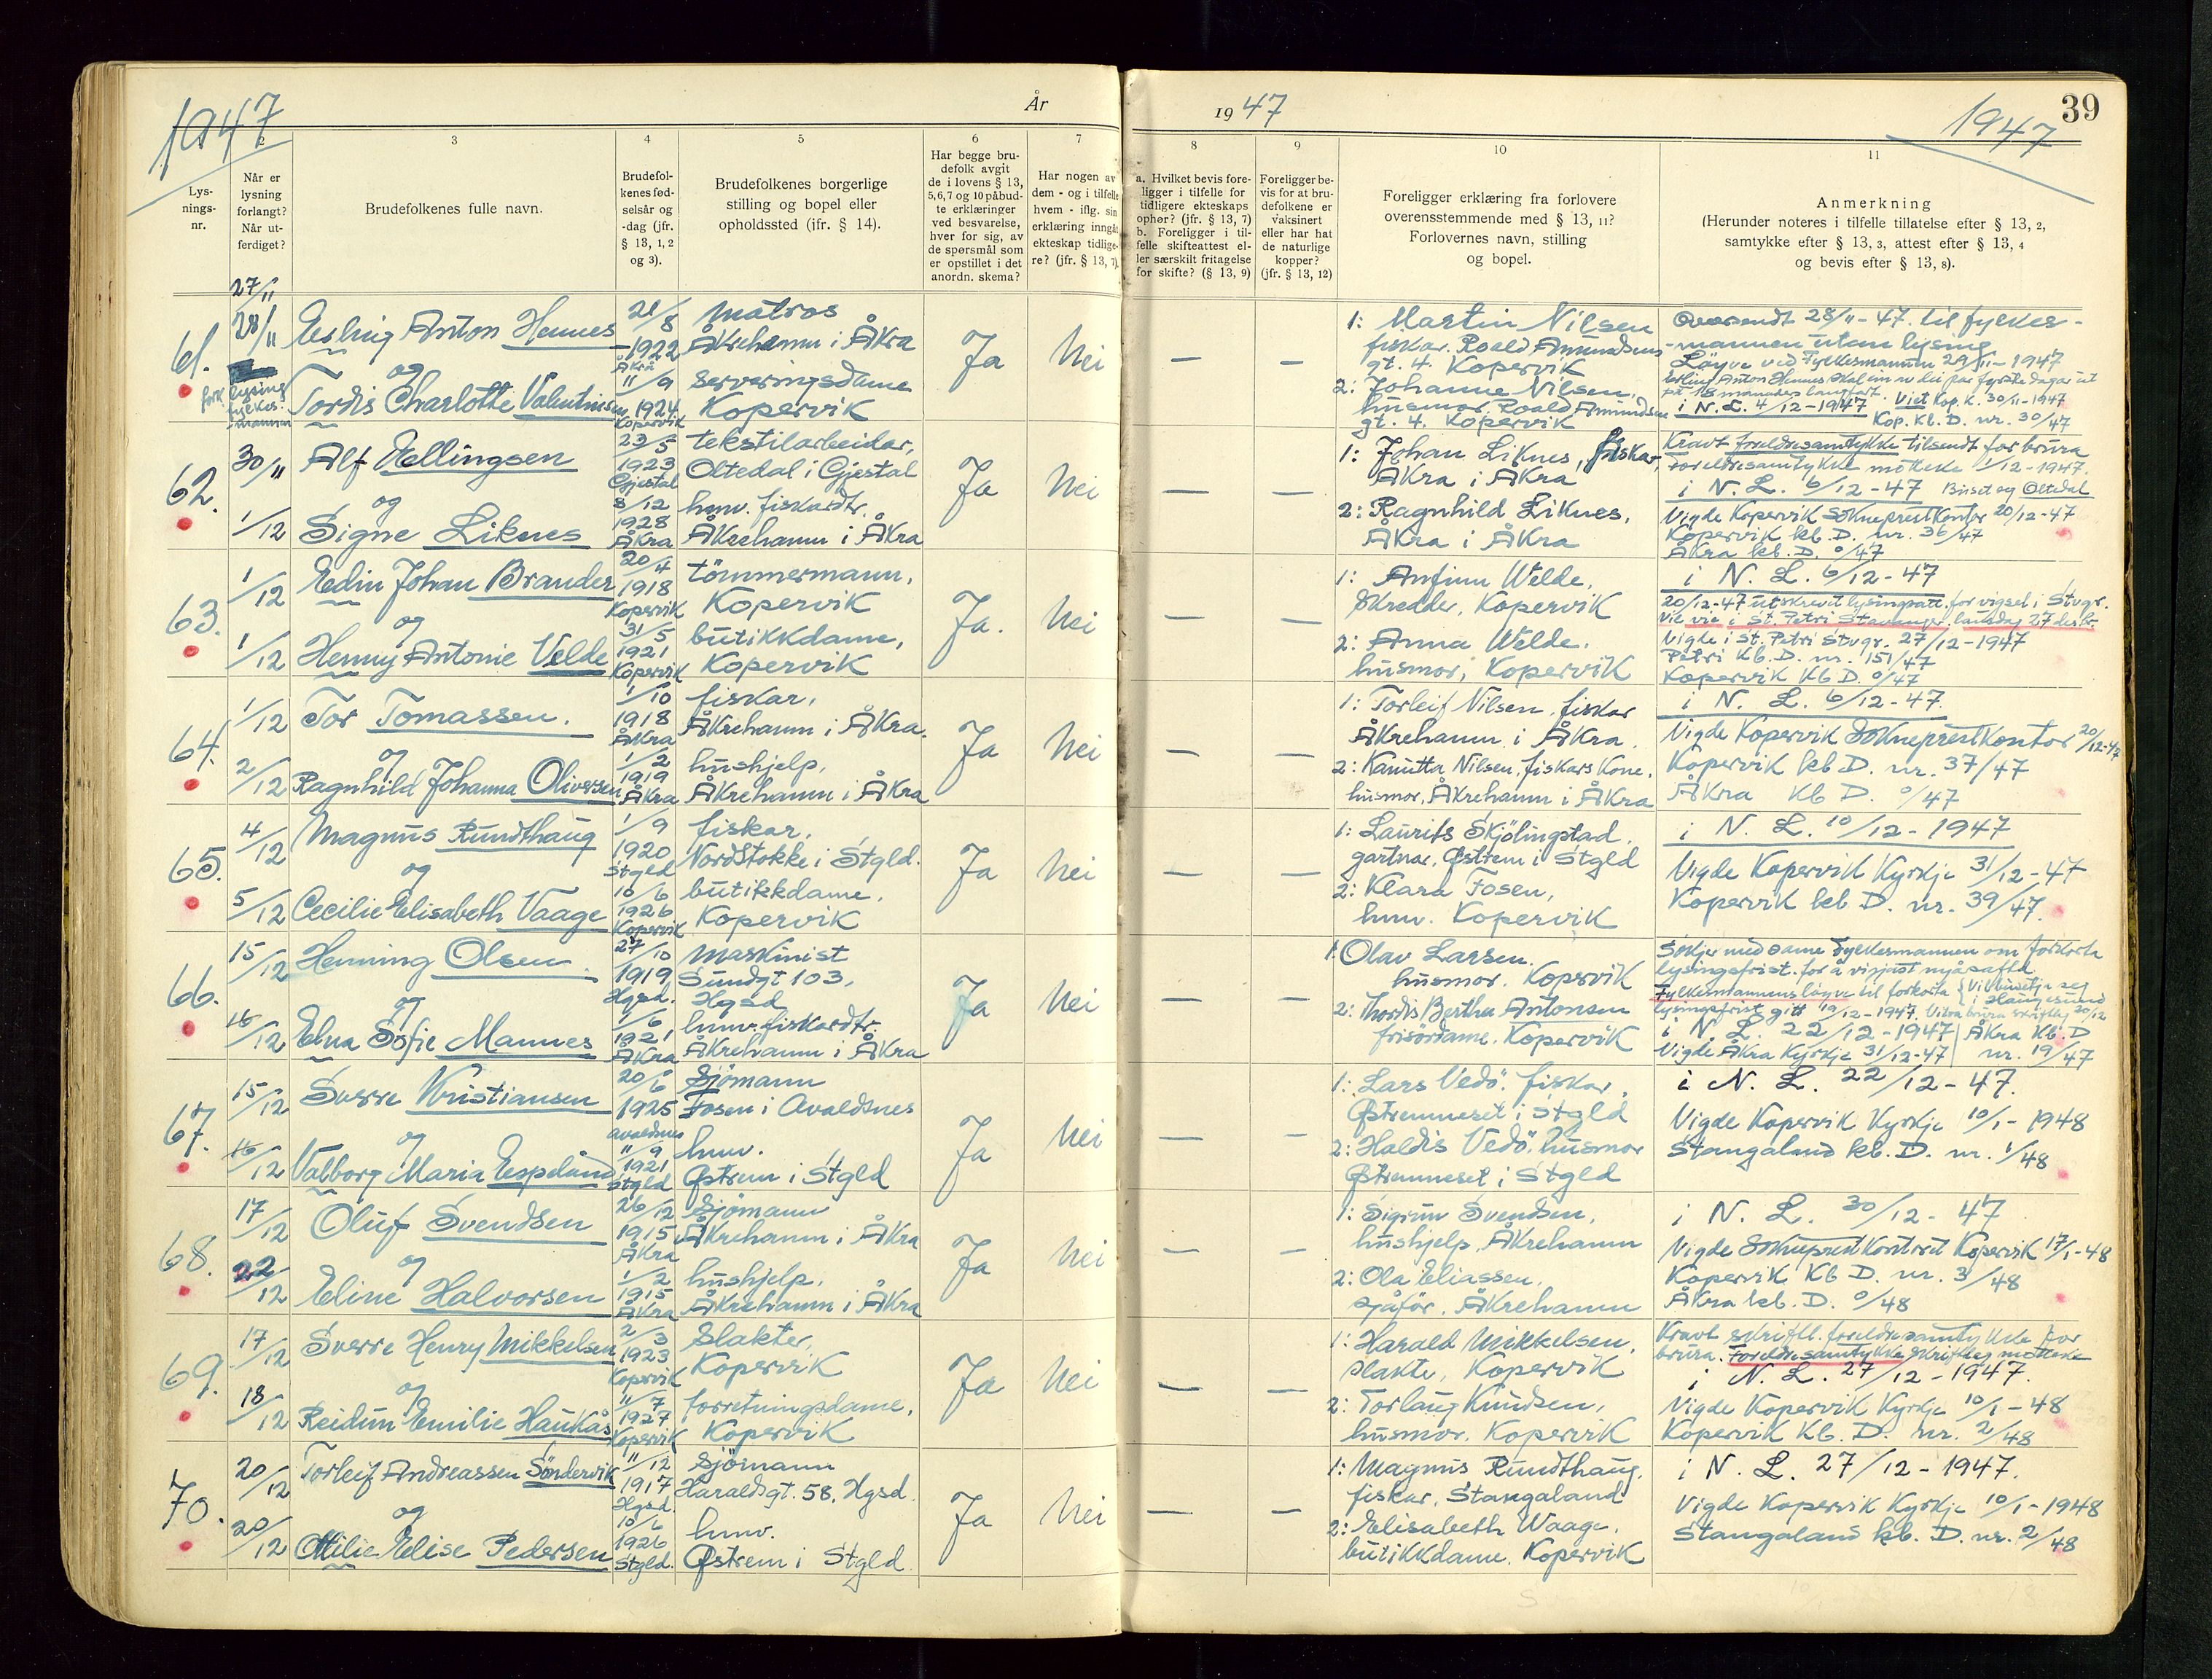 1947
År
19 47
1947
39
2
3
4
5
6
7
8
9
10
11
Lys-
nings-
nr.
Når er
lysning
forlangt?
Når ut-
ferdiget?
Brudefolkenes fulle navn.
Brudefol-
kenes fød-
selsår og
-dag (jfr.
§ 13, 1, 2
og 3).
Brudefolkenes borgerlige
stilling og bopel eller
opholdssted (jfr. § 14).
Har begge bru-
defolk avgit
de i lovens § 13,
5,6,7 og 10 påbud-
te erklæringer
ved besvarelse,
hver for sig, av
de spørsmål som
er opstillet i det
anordn. skema?
Har nogen av
dem - og i tilfelle
hvem - iflg. sin
erklæring inngåt
ekteskap tidlige-
re? (jfr. § 13, 7)
a. Hvilket bevis fore-
ligger i tilfelle for
tidligere ekteskaps
ophør? (jfr. § 13, 7)
b. Foreligger i til-
felle skifteattest el-
ler særskilt fritagelse
for skifte? (§ 13, 9)
Foreligger be-
vis for at bru-
defolkene er
vaksinert
eller har hat
de naturlige
kopper?
(jfr. § 13, 12)
Foreligger erklæring fra forlovere
overensstemmende med § 13, 11?
Forlovernes navn, stilling
og bopel.
Anmerkning
(Herunder noteres i tilfelle tillatelse efter § 13, 2,
samtykke efter § 13, 3, attest efter § 13, 4
og bevis efter § 13, 8).
61.
27/11
28/11
lysing
fylkes-
mannen
Erling Anton Hennes
og
Tordis Charlotte Valentinsen
21/8
1922
Åkra
11/9
1924
Kopervik
matros
Åkrehamn i Åkra
serveringsdame
Kopervik
Ja
Nei
—
—
1: Martin Nilsen
fiskar. Roald Amundsens
gt. 4. Kopervik
2: Johanne Nilsen,
husmor. Roald Amundsens
gt. 4. Kopervik
Oversendt 28/11-47. til fylkes-
mannen utan lysing
Løyve ved Fylkesmannen 29/11-1947
Viet Kop. K. 30/11-1947
i N.L. 4/12-1947 Kop. Kb. D. nr. 30/47
62.
30/11
1/12
Alf Ellingsen
og
Signe Liknes
23/5
1923
Gjestal
8/12
1928
Åkra
tekstilarbeidar,
Oltedal i Gjestal
hmv. fiskardtr.
Åkrehamn i Åkra
Ja
Nei
—
—
1: Johan Liknes, fiskar,
Åkra i Åkra
2: Ragnhild Liknes,
Åkra i Åkra
Kravt foreldresamtykke tilsendt for brura
Foreldresamtykke motteke 1/12-1947.
i N. L. 6/12-47 Buset og Oltedal
Vigde Kopervik Sokneprestkontor 20/12-47
Kopervik kb. D. nr. 36/47
Åkra kb. D. 0/47
63.
1/12
1/12
Edin Johan Brander
og
Henny Antonie Velde
20/4
1918
Kopervik
31/5
1921
Kopervik
tömmermann,
Kopervik
butikkdame,
Kopervik
Ja.
Nei
—
—
1: Anfinn Welde,
Skredder, Kopervik
2: Anna Welde,
husmor, Kopervik
i N. L. 6/12-47
20/12-47 utskrevit lysingsatt. for vigsel i Stvgr.
Vil vie i St. Petri Stavanger, laurdag 27 desbr.
Vigde i St. Petri Stvgr. 27/12-1947
Petri Kb. D. nr. 151/47
Kopervik Kb D. 0/47
64.
1/12
2/12
Tor Tomassen.
og
Ragnhild Johanna Oliversen
1/10
1918
Åkra
1/2
1919
Åkra
fiskar,
Åkrehamn i Åkra.
hushjelp,
Åkrehamn i Åkra
Ja
Nei
—
—
1: Torleif Nilsen, fiskar
Åkrehamn i Åkra.
2: Kanutta Nilsen, fiskars Kone,
husmor, Åkrehamn i Åkra
i N. L. 6/12-47.
Vigde Kopervik Sokneprestkontor 20/12-47
Kopervik kb D. nr. 37/47
Åkra Kb D. 0/47
65.
4/12
5/12
Magnus Rundthaug
og
Cecilie Elisabeth Vaage
1/9
1920
Stgld
10/6
1926
Kopervik
fiskar,
Nordstokke i Stgld.
butikkdame,
Kopervik
Ja
Nei
—
—
1: Laurits Skjölingstad,
gartnar, Østrem i Stgld
2: Klara Fosen,
hmv. Kopervik
i N. L. 10/12-1947
Vigde Kopervik Kyrkje 31/12-47
Kopervik kb. D. nr. 39/47.
66.
15/12
16/12
Henning Olsen
og
Elna Sofie Mannes
27/10
1919
Hgsd.
1/6
1921
Åkra
maskinist
Sundgt 103,
Hgsd
hmv. fiskardtr.
Åkrehamn i Åkra
Ja
Nei
—
—
1: Olav Larsen.
husmor. Kopervik
2: Thordis Berthe Antonsen
frisördame. Kopervik
Søkjer med same Fylkesmannen om forkorta
lysingsfrist. for å vigjast nyårsafta
Fylkesmannens løyve til forkorta { Vil busetja seg
lysingsfrist gitt 19/12-1947. { i Haugesund
i N. L. 22/12-1947 | Åkra Kb. D
Vigde Åkra Kyrkje 31/12-47 | nr. 19/47
67.
15/12
16/12
Sverre Kristiansen
og
Valborg Maria Espeland
20/6
1925
Avaldsnes
11/9
1921
Stgld
Sjömann
Fosen i Avaldsnes
hmv.
Østrem i Stgld
Ja
Nei
—
—
1: Lars Vedö. fiskar,
Østremneset i Stgld
2: Haldis Vedö. husmor
Østremneset i Stgld
i N. L. 22/12-47.
Vigde Kopervik Kyrkje 10/1-1948
Stangaland kb. D. nr. 1/48
68.
17/12
22/12
Oluf Svendsen
og
Eline Halvorsen
26/12
1915
Åkra
1/2
1915
Åkra
Sjömann
Åkrehamn i Åkra
hushjelp,
Åkrehamn i Åkra
Ja
Nei
—
—
1: Sigrun Svendsen,
hushjelp, Åkrehamn
2: Ola Eliassen,
sjåför, Åkrehamn
i N. L. 30/12-47
Vigde Sokneprestkontoret Kopervik 17/1-48
Kopervik Kb D. nr. 3/48
Åkra kb. D. 0/48
69.
17/12
18/12
Sverre Henry Mikkelsen
og
Reidun Emilie Haukås
2/3
1923
Kopervik
11/7
1927
Kopervik
Slakter,
Kopervik
forretningsdame,
Kopervik
Ja
Nei
—
—
1: Harald Mikkelsen,
Slakte, Kopervik
2: Torlaug Knudsen,
husmor. Kopervik
Kravt skriftl. foreldresamtykke for
brura. Foreldresamtykke skriftleg motteke
i N. L. 27/12-1947.
Vigde Kopervik Kyrkje 10/1-48
Kopervik Kb. D. nr. 2/48
70.
20/12
20/12
Torleif Andreassen Søndervik
og
Ottilie Elise Pedersen
11/12
1917
Hgsd.
10/6
1926
Stgld.
sjömann
Haraldsgt. 58, Hgsd.
hmv.
Østrem i Stgld.
Ja
Nei
—
—
1: Magnus Rundthaug,
fiskar, Stangaland
2: Elisabeth Waage,
butikkdame. Kopervik
i N. L. 27/12-1947.
Vigde Kopervik Kyrkje 10/1-1948
Stangaland kb. D. nr. 2/48